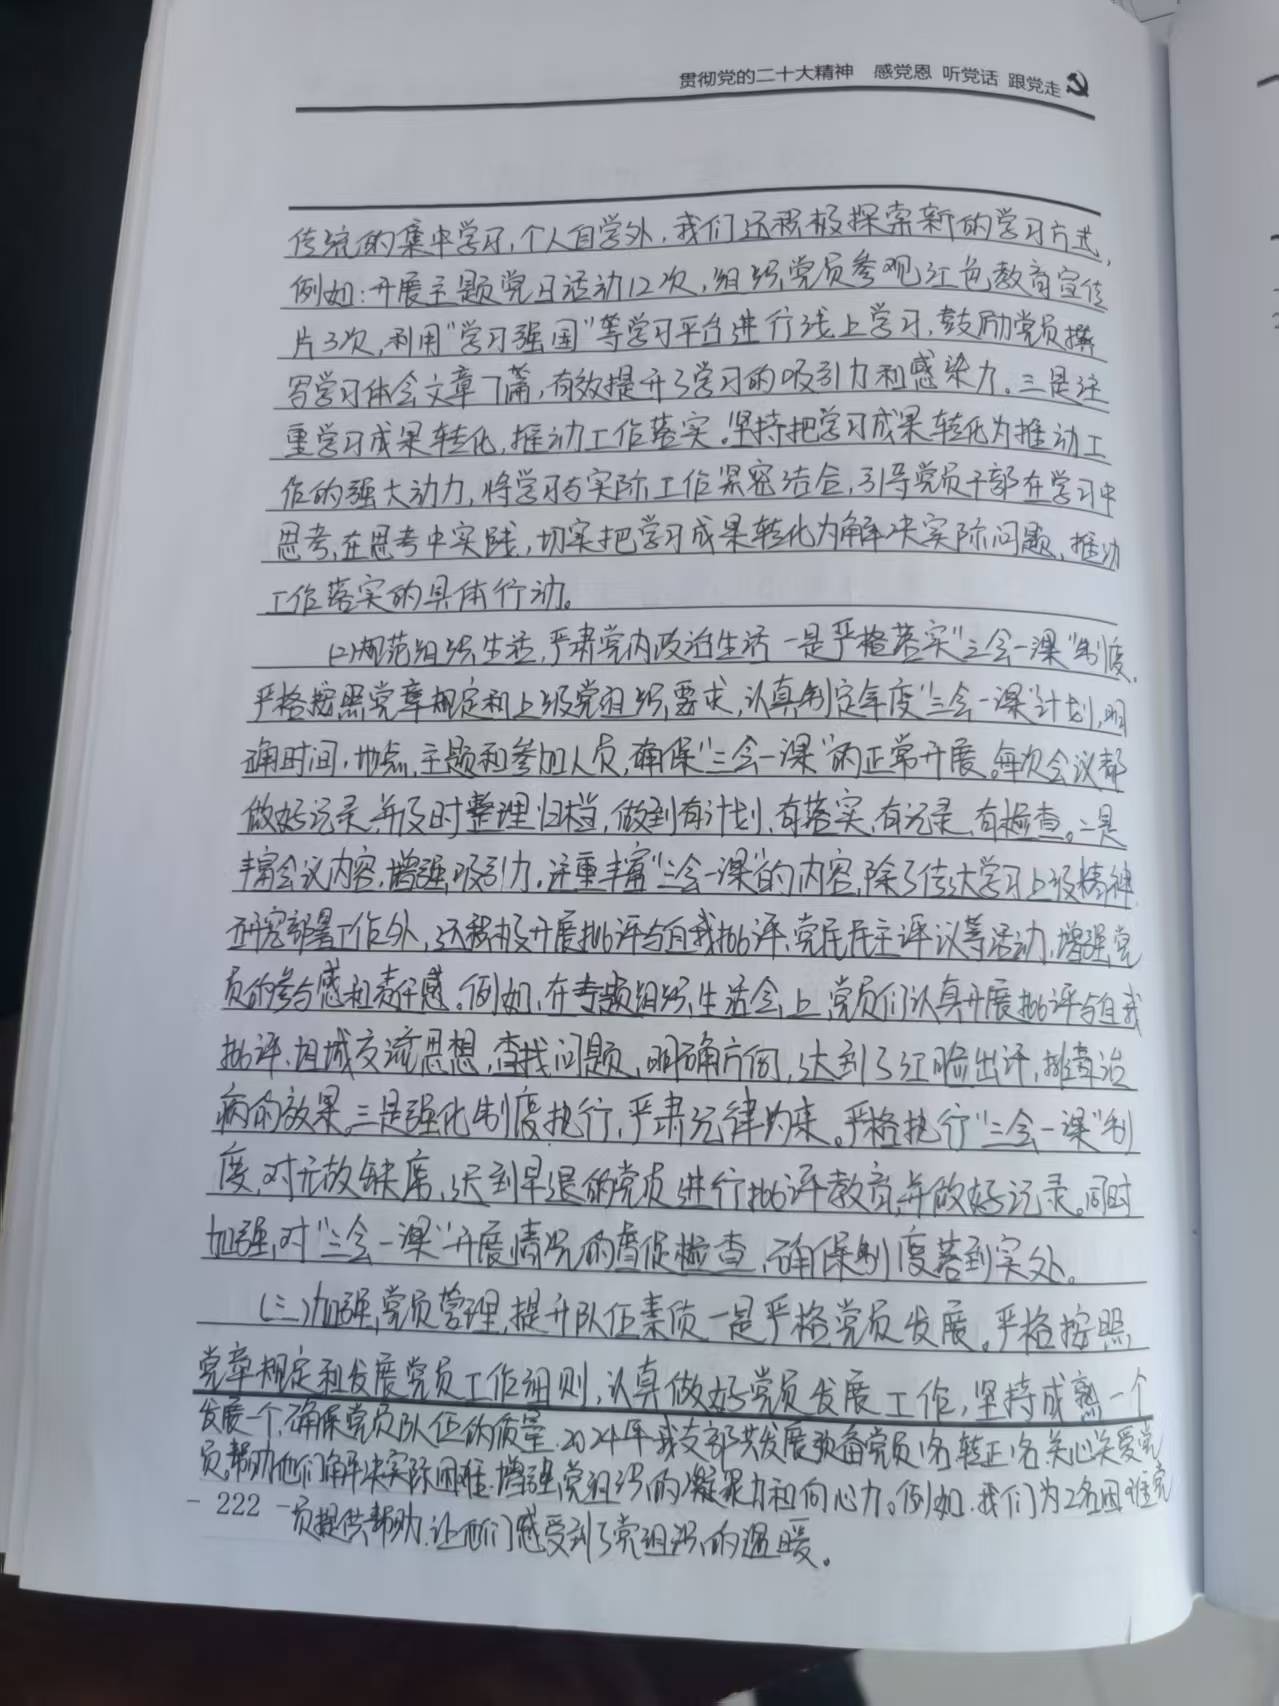 贯彻党的二十大精神 感党恩 听党话 跟党走
传统的集中学习,个人自学外,我们还积极探索新的学习方式,
例如:开展主题党日活动12次,组织党员参观红色教育宣传
片3次,利用"学习强国"等学习平台进行线上学习,鼓励党员撰
写学习体会文章7篇,有效提升了学习的吸引力和感染力。三是注
重学习成果转化,推动工作落实。坚持把学习成果转化为推动工
作的强大动力,将学习与实际工作紧密结合,引导党员干部在学习中
思考,在思考中实践,切实把学习成果转化为解决实际问题、推动
工作落实的具体行动。
(二)规范组织生活,严肃党内政治生活 一是严格落实"三会一课"制度,
严格按照党章规定和上级党组织要求,认真制定年度"三会一课"计划,明
确时间,地点,主题和参加人员,确保"三会一课"的正常开展。每次会议都
做好记录,并及时整理归档,做到有计划,有落实,有记录,有检查。二是
丰富会议内容,增强吸引力。注重丰富"三会一课"的内容,除了传达学习上级精神,
研究部署工作外,还积极开展批评与自我批评,党民民主评议等活动,增强党
员的参与感和责任感。例如,在专题组织生活会上,党员们认真开展批评与自我
批评,坦诚交流思想,查找问题,明确方向,达到了红脸出汗,排毒治
病的效果。三是强化制度执行,严肃纪律约束。严格执行"三会一课"制
度,对无故缺席,迟到早退的党员进行批评教育,并做好记录。同时
加强对"三会一课"开展情况的督促检查,确保制度落到实处。
(三)加强党员管理,提升队伍素质 一是严格党员发展。严格按照
党章规定和发展党员工作细则,认真做好党员发展工作,坚持成熟一个
发展一个,确保党员队伍的质量.2024年我支部共发展预备党员1名,转正1名,关心关爱党
员,帮助他们解决实际困难.增强党组织的凝聚力和向心力。例如.我们为2名困难党
- 222 - 员提供帮助.让他们感受到了党组织的温暖。